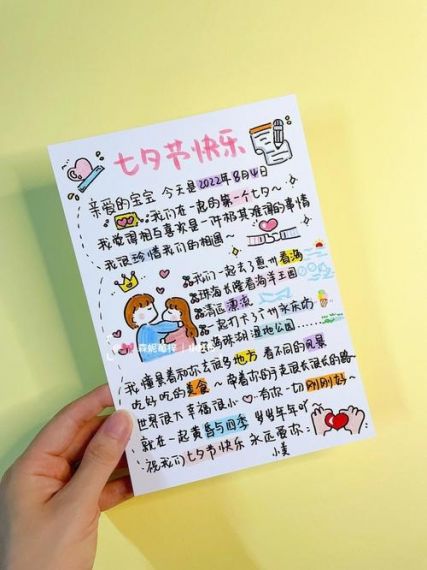 七夕节快乐
亲爱的宝宝 今天是2022年8月4日
我们在一起的第一个七夕~
我觉得相互喜欢是一件极其难得的事情
我很珍惜我们的相遇~
我们一起去了惠州看海
珠海长隆看海洋王国
清远漂流
一起打卡了广州永庆坊
海珠湖 湿地公园……
我憧憬着和你去很多地方 看不同的风景
吃好吃的美食~ 带着你的手走很长很长的路~
世界很大幸福很小 有你一切刚刚好~
就在一起黄昏与四季 岁岁年年吖~
祝我们七夕节快乐 永远爱你.
小美